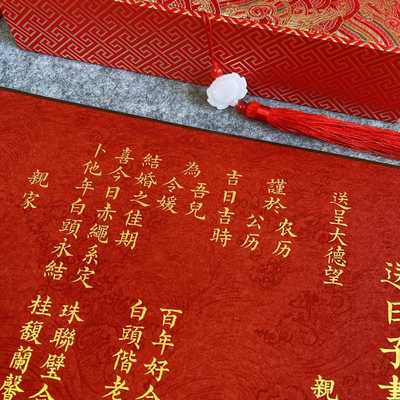 送日子書
親
送呈大德望
謹於 农历
公历
吉日吉時
為吾兒
令媛
結婚之佳期
喜今日赤繩系定
卜他年白頭永結
親家
百年好合
白頭偕老
珠聯璧合
桂馥蘭馨